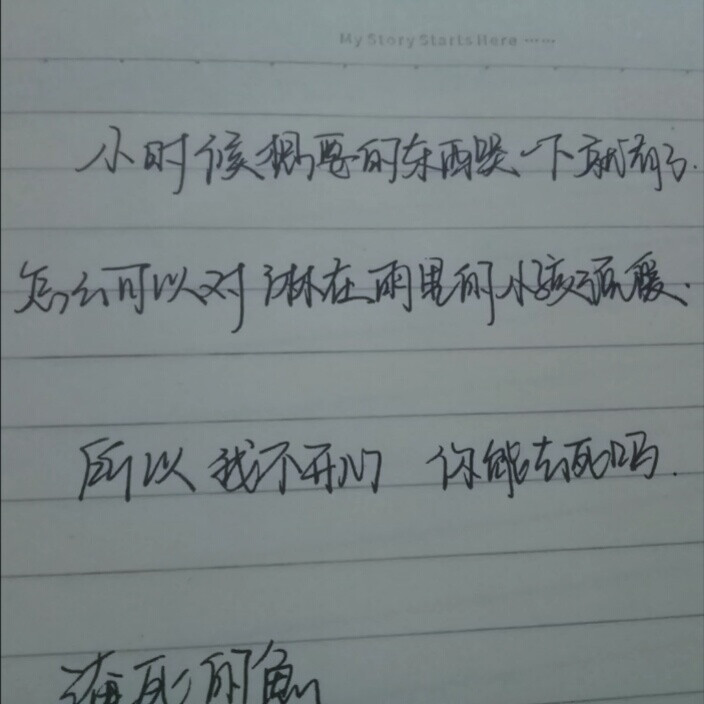 My Story Starts Here ······
小时候想要的东西哭一下就有了.
怎么可以对淋在雨里的小孩说暖.
所以我不开心 你能去死吗.
淹死的鱼